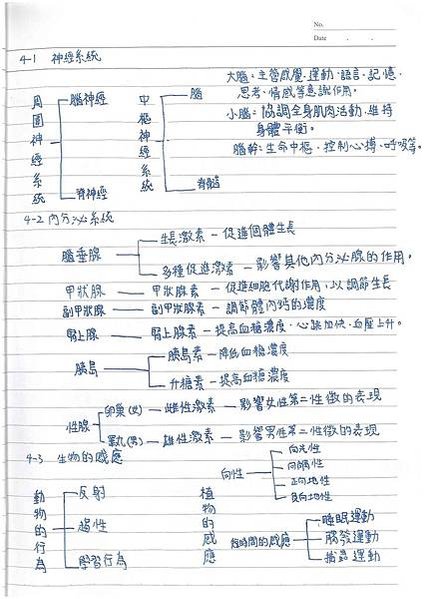 No.
Date . .
4-1 神經系統
周圍神經系統
腦神經
脊神經
中樞神經系統
腦
脊髓
大腦：主管感覺、運動、語言、記憶、
思考、情感等意識作用。
小腦：協調全身肌肉活動、維持
身體平衡。
腦幹：生命中樞，控制心搏、呼吸等。
4-2 內分泌系統
腦垂腺
生長激素－促進個體生長
多種促進激素－影響其他內分泌腺的作用。
甲狀腺－甲狀腺素－促進細胞代謝作用，以調節生長
副甲狀腺－副甲狀腺素－調節體內鈣的濃度
腎上腺－腎上腺素－提高血糖濃度，心跳加快，血壓上升。
胰島
胰島素－降低血糖濃度
升糖素－提高血糖濃度
性腺
卵巢(女)－雌性激素－影響女性第二性徵的表現
睪丸(男)－雄性激素－影響男性第二性徵的表現
4-3 生物的感應
動物的行為
反射
趨性
學習行為
植物的感應
向性
向光性
向觸性
正向地性
負向地性
短時間的感應
睡眠運動
觸發運動
捕蟲運動